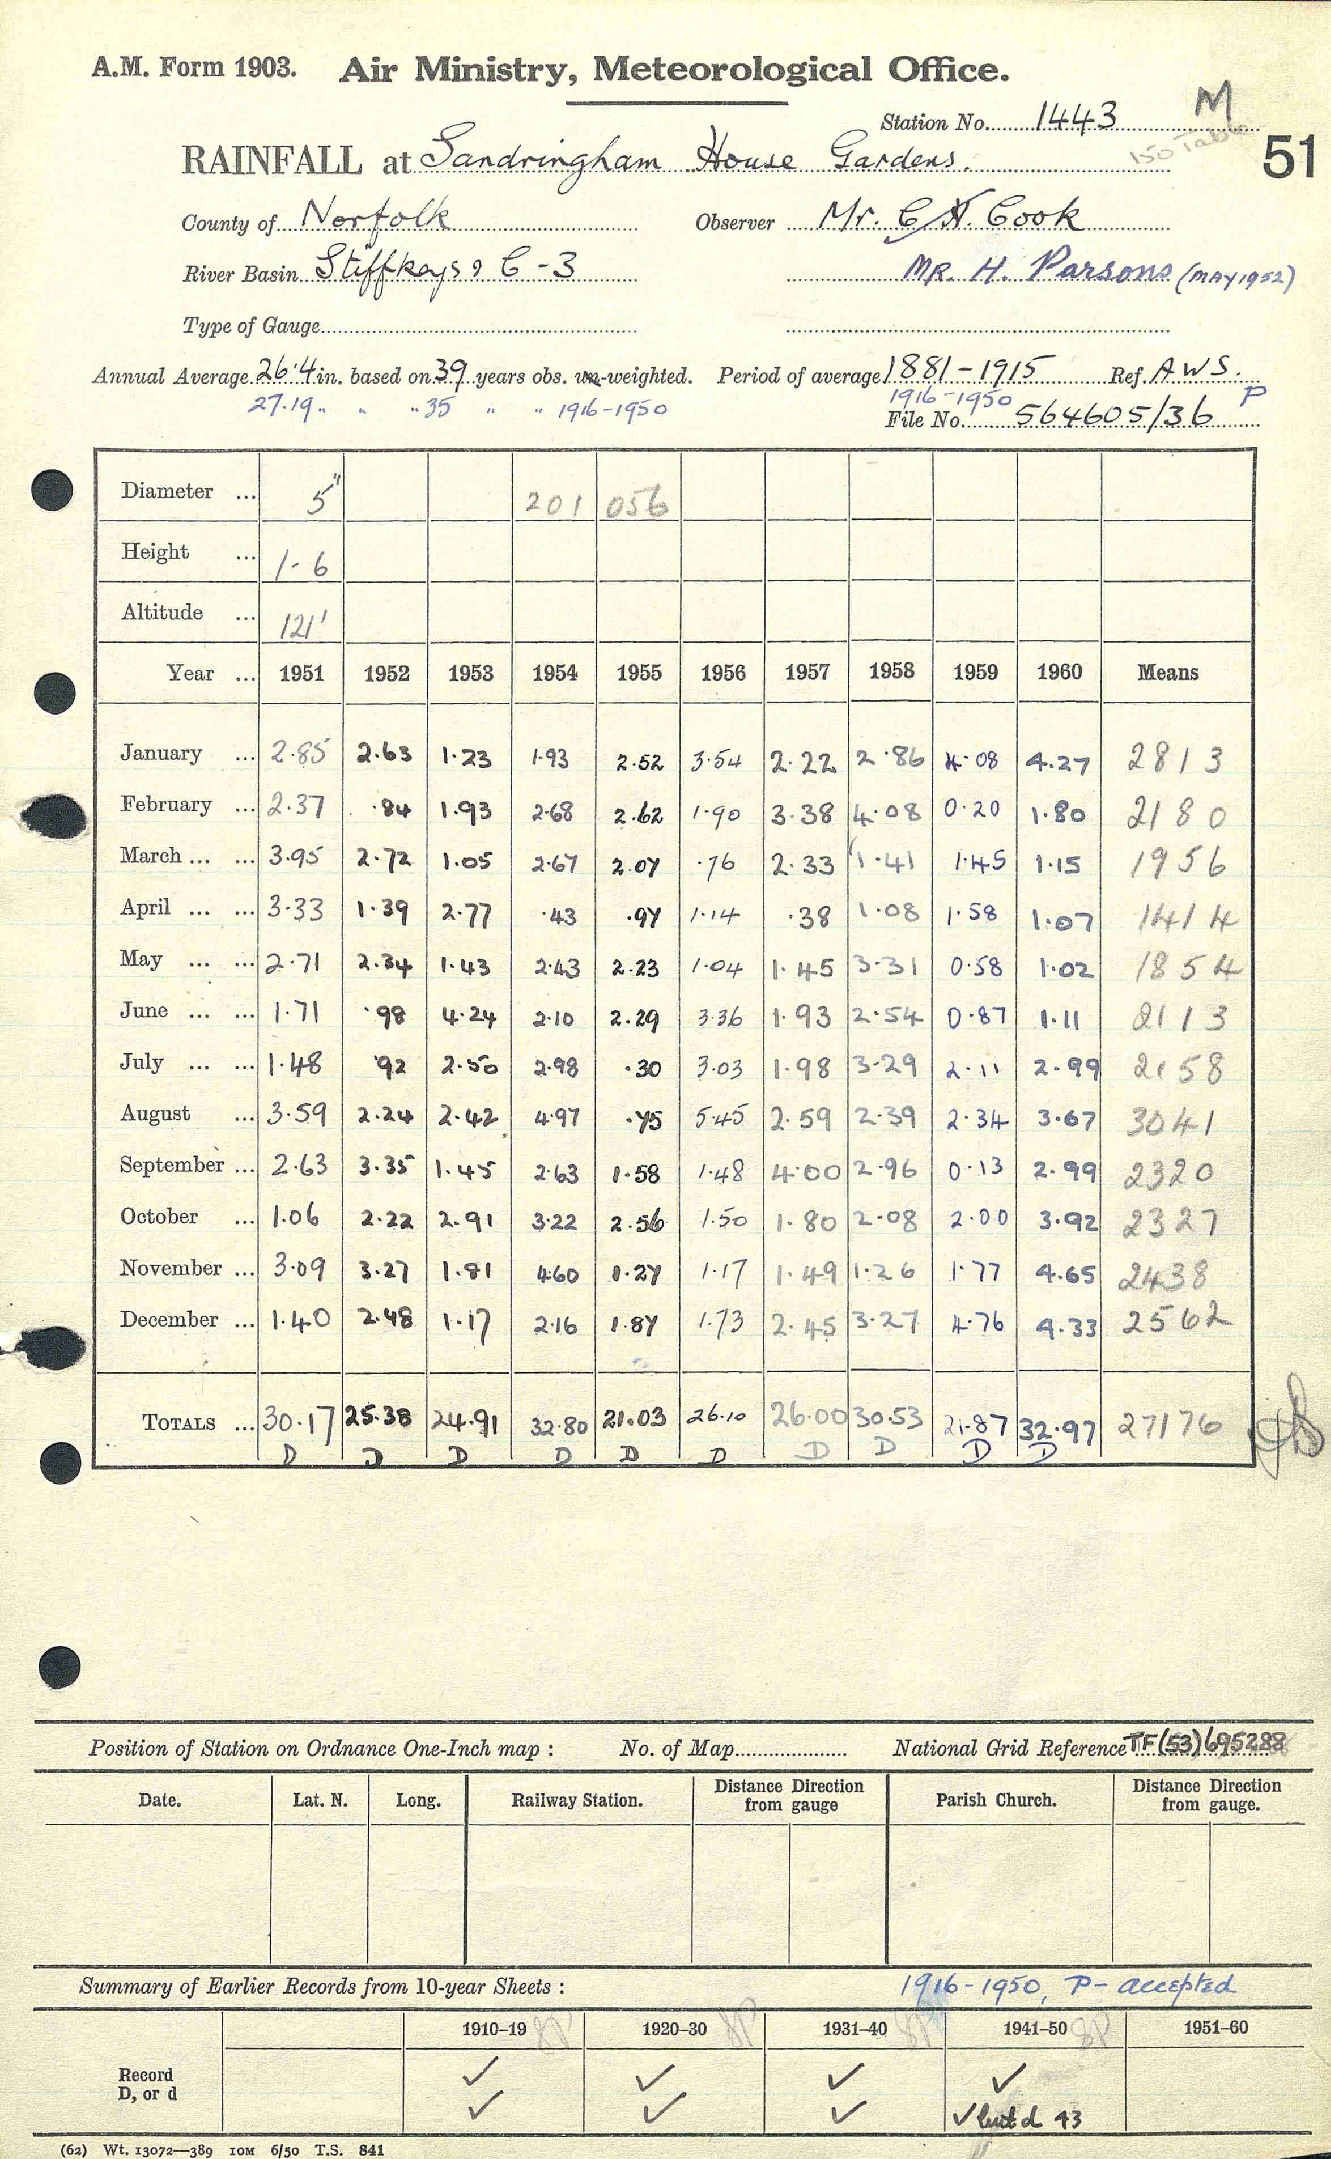 A.M. Form 1903. Air Ministry, Meteorological Office.
Station No. 1443 M
150 Table
51
RAINFALL at Sandringham House Gardens.
County of Norfolk Observer Mr. C. A. Cook
River Basin Stiffkey & C-3 MR. H. Parsons (MAY 1952)
Type of Gauge
Annual Average 26.4 in. based on 39 years obs. un-weighted. Period of average 1881-1915 Ref. A W S.
27.19 " " " 35 " " 1916-1950 1916-1950 P
File No. 564605/36
Diameter ... 5" 201 056
Height ... 1-6
Altitude ... 121'
Year ... 1951 1952 1953 1954 1955 1956 1957 1958 1959 1960 Means
January ... 2.85 2.63 1.23 1.93 2.52 3.54 2.22 2.86 4.08 4.27 2813
February ... 2.37 .84 1.93 2.68 2.62 1.90 3.38 4.08 0.20 1.80 2180
March ... ... 3.95 2.72 1.05 2.67 2.07 .76 2.33 1.41 1.45 1.15 1956
April ... ... 3.33 1.39 2.77 .43 .97 1.14 .38 1.08 1.58 1.07 1414
May ... ... 2.71 2.34 1.43 2.43 2.23 1.04 1.45 3.31 0.58 1.02 1854
June ... ... 1.71 .98 4.24 2.10 2.29 3.36 1.93 2.54 0.87 1.11 2113
July ... ... 1.48 .92 2.50 2.98 .30 3.03 1.98 3.29 2.11 2.99 2158
August ... 3.59 2.24 2.42 4.97 .75 5.45 2.59 2.39 2.34 3.67 3041
September ... 2.63 3.35 1.45 2.63 1.58 1.48 4.00 2.96 0.13 2.99 2320
October ... 1.06 2.22 2.91 3.22 2.56 1.50 1.80 2.08 2.00 3.92 2327
November ... 3.09 3.27 1.81 4.60 1.27 1.17 1.49 1.26 1.77 4.65 2438
December ... 1.40 2.48 1.17 2.16 1.87 1.73 2.45 3.27 4.76 4.33 2562
TOTALS ... 30.17 25.38 24.91 32.80 21.03 26.10 26.00 30.53 21.87 32.97 27176
D D D D D D D D D D
Position of Station on Ordnance One-Inch map : No. of Map National Grid Reference TF(53)695288
Date. Lat. N. Long. Railway Station. Distance Direction from gauge Parish Church. Distance Direction from gauge.
Summary of Earlier Records from 10-year Sheets : 1916-1950, P- accepted
1910-19 1920-30 1931-40 1941-50 1951-60
Record ✓ ✓ ✓ ✓
D, or d ✓ ✓ ✓ ✓ but d 43
(62) Wt. 13072—389 10M 6/50 T.S. 841